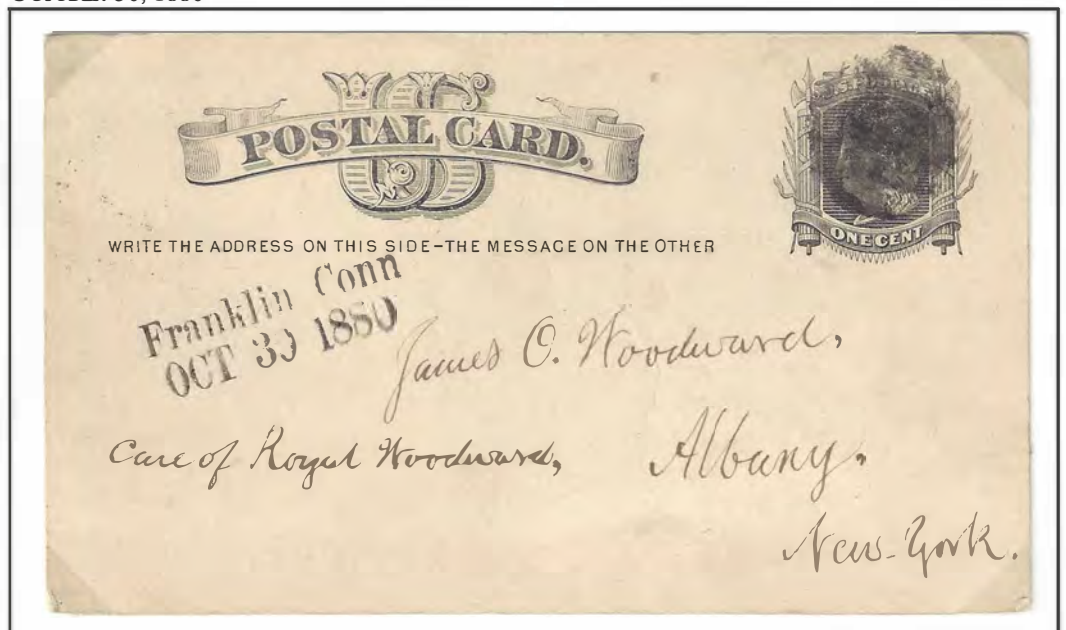 US
POSTAL CARD.
U.S. POSTAGE
ONE CENT
WRITE THE ADDRESS ON THIS SIDE-THE MESSAGE ON THE OTHER
Franklin Conn
OCT 30 1880
James O. Woodward,
Care of Royal Woodward,
Albany,
New-York.